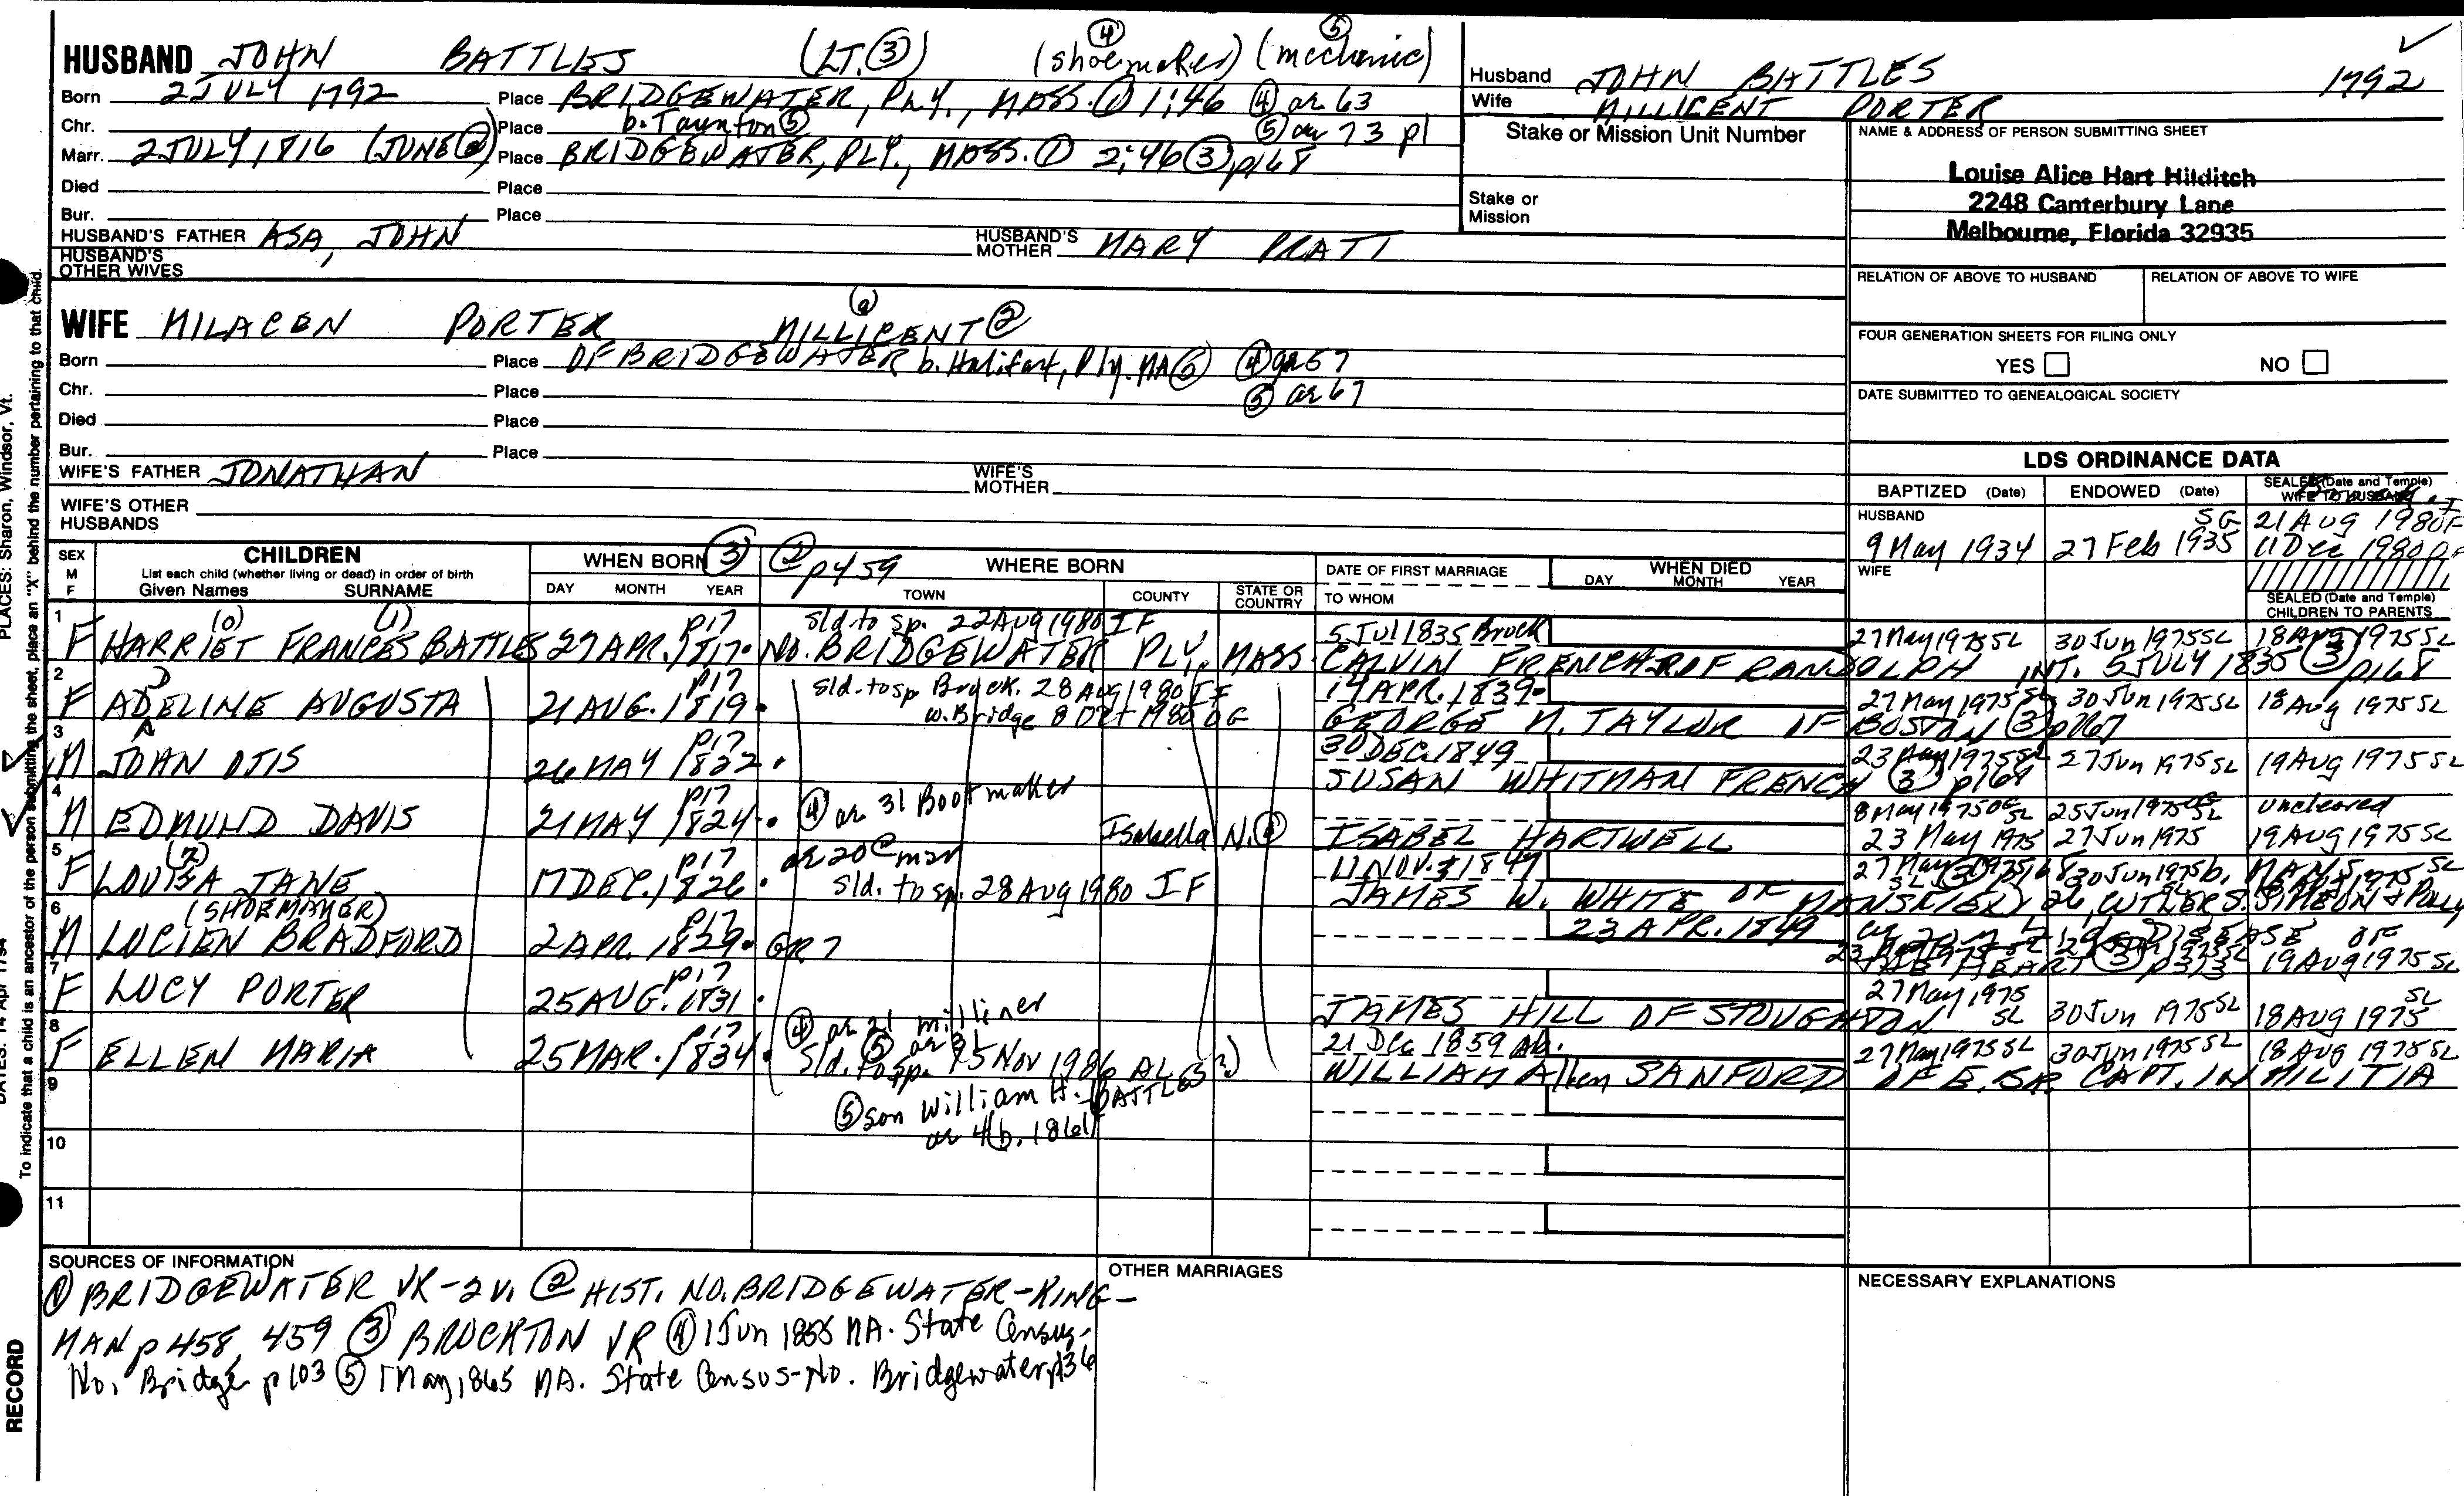 HUSBAND JOHN BATTLES (LT. ③) (shoemaker) ④ (mechanic) ⑤
Born 2 JULY 1792 Place BRIDGEWATER, PLY., MASS. ① 1:46 ④ ae 63
Chr. Place b. Taunton ⑤ ⑤ ae 73 pl
Marr. 2 JULY 1816 (JUNE ②) Place BRIDGEWATER, PLY., MASS. ① 2:46 ③ p168
Died Place
Bur. Place
HUSBAND'S FATHER ASA, JOHN HUSBAND'S MOTHER MARY PRATT
HUSBAND'S OTHER WIVES
Husband JOHN BATTLES 1792
Wife MILLICENT PORTER
Stake or Mission Unit Number
Stake or Mission
NAME & ADDRESS OF PERSON SUBMITTING SHEET
Louise Alice Hart Hilditch
2248 Canterbury Lane
Melbourne, Florida 32935
RELATION OF ABOVE TO HUSBAND RELATION OF ABOVE TO WIFE
FOUR GENERATION SHEETS FOR FILING ONLY
YES NO
DATE SUBMITTED TO GENEALOGICAL SOCIETY
WIFE MILACEN PORTER MILLICENT ②
Born Place OF BRIDGEWATER b. Halifax, Ply. MA ⑤ ④ ae 57
Chr. Place ⑤ ae 67
Died Place
Bur. Place
WIFE'S FATHER JONATHAN WIFE'S MOTHER
WIFE'S OTHER HUSBANDS
LDS ORDINANCE DATA
BAPTIZED (Date) ENDOWED (Date) SEALED (Date and Temple) WIFE TO HUSBAND
HUSBAND SG 21 Aug 1980 IF
9 May 1934 27 Feb 1935 11 Dec 1980
WIFE
SEALED (Date and Temple) CHILDREN TO PARENTS
SEX M F CHILDREN List each child (whether living or dead) in order of birth Given Names SURNAME
WHEN BORN ③ DAY MONTH YEAR
② p459 WHERE BORN TOWN COUNTY STATE OR COUNTRY
DATE OF FIRST MARRIAGE TO WHOM
WHEN DIED DAY MONTH YEAR
1 (0) (1) p17 Sld to sp. 22 Aug 1980 IF 5 Jul 1835 Brock 27 May 1975 SL 30 Jun 1975 SL 18 Aug 1975 SL
F HARRIET FRANCES BATTLES 27 APR. 1817 NO. BRIDGEWATER PLY. MASS. CALVIN FRENCH JR. OF RANDOLPH INT. 5 JULY 1835 ③ p168
2 D p17 Sld. to sp Brock. 28 Aug 1980 IF 14 APR. 1839 27 May 1975 SL 30 Jun 1975 SL 18 Aug 1975 SL
F ADELINE AUGUSTA 21 AUG. 1819 w. Bridge 8 Oct 1980 OG GEORGE N. TAYLOR OF BOSTON ③
3 p17 30 DEC. 1849 23 May 1975 SL 27 Jun 1975 SL 19 Aug 1975 SL
M JOHN OTIS 26 MAY 1822 SUSAN WHITMAN FRENCH ③ p169
4 p17 ④ ae 31 Bootmaker 8 May 1975 OG SL 25 Jun 1975 OG SL uncleared
M EDMUND DAVIS 21 MAY 1824 Isabella N. ISABEL HARTWELL 23 May 1975 27 Jun 1975 19 Aug 1975 SL
5 (2) p17 ae 20 @ mar 11 NOV. 1847 27 May 1975 30 Jun 1975
F LOUISA JANE 17 DEC. 1826 Sld. to sp. 28 Aug 1980 IF JAMES W. WHITE OF MANSFIELD 26, CUTLER S. SIMEON & POLLY
6 (SHOEMAKER) p17 23 APR. 1849
M LUCIEN BRADFORD 2 APR. 1829 GR 7 DISEASE OF THE HEART ③ p313 19 Aug 1975 SL
7 p17 27 May 1975 SL 30 Jun 1975 SL 18 Aug 1975 SL
F LUCY PORTER 25 AUG. 1831 JAMES HILL OF STOUGHTON
8 p17 ④ ae 21 milliner ⑤ ae 31 21 Dec 1859 Ab. 27 May 1975 SL 30 Jun 1975 SL 18 Aug 1975 SL
F ELLEN MARIA 25 MAR. 1834 Sld. to sp. 15 Nov 1986 AL WILLIAM Allen SANFORD OF E. BR. CAPT. IN MILITIA
9 ⑤ son William H. BATTLES
ae 4 (b. 1861)
10
11
SOURCES OF INFORMATION
① BRIDGEWATER VR-2V. ② HIST. NO. BRIDGEWATER-KING-
MAN p 458, 459 ③ BROCKTON VR ④ 1 Jun 1855 MA. State Census-
No. Bridge p103 ⑤ 1 May, 1865 MA. State Census-No. Bridgewater, p136
OTHER MARRIAGES
NECESSARY EXPLANATIONS
PLACES: Sharon, Windsor, Vt.
DATES: 14 Apr 1794
To indicate that a child is an ancestor of the person submitting the sheet, place an "X" behind the number pertaining to that child.
RECORD